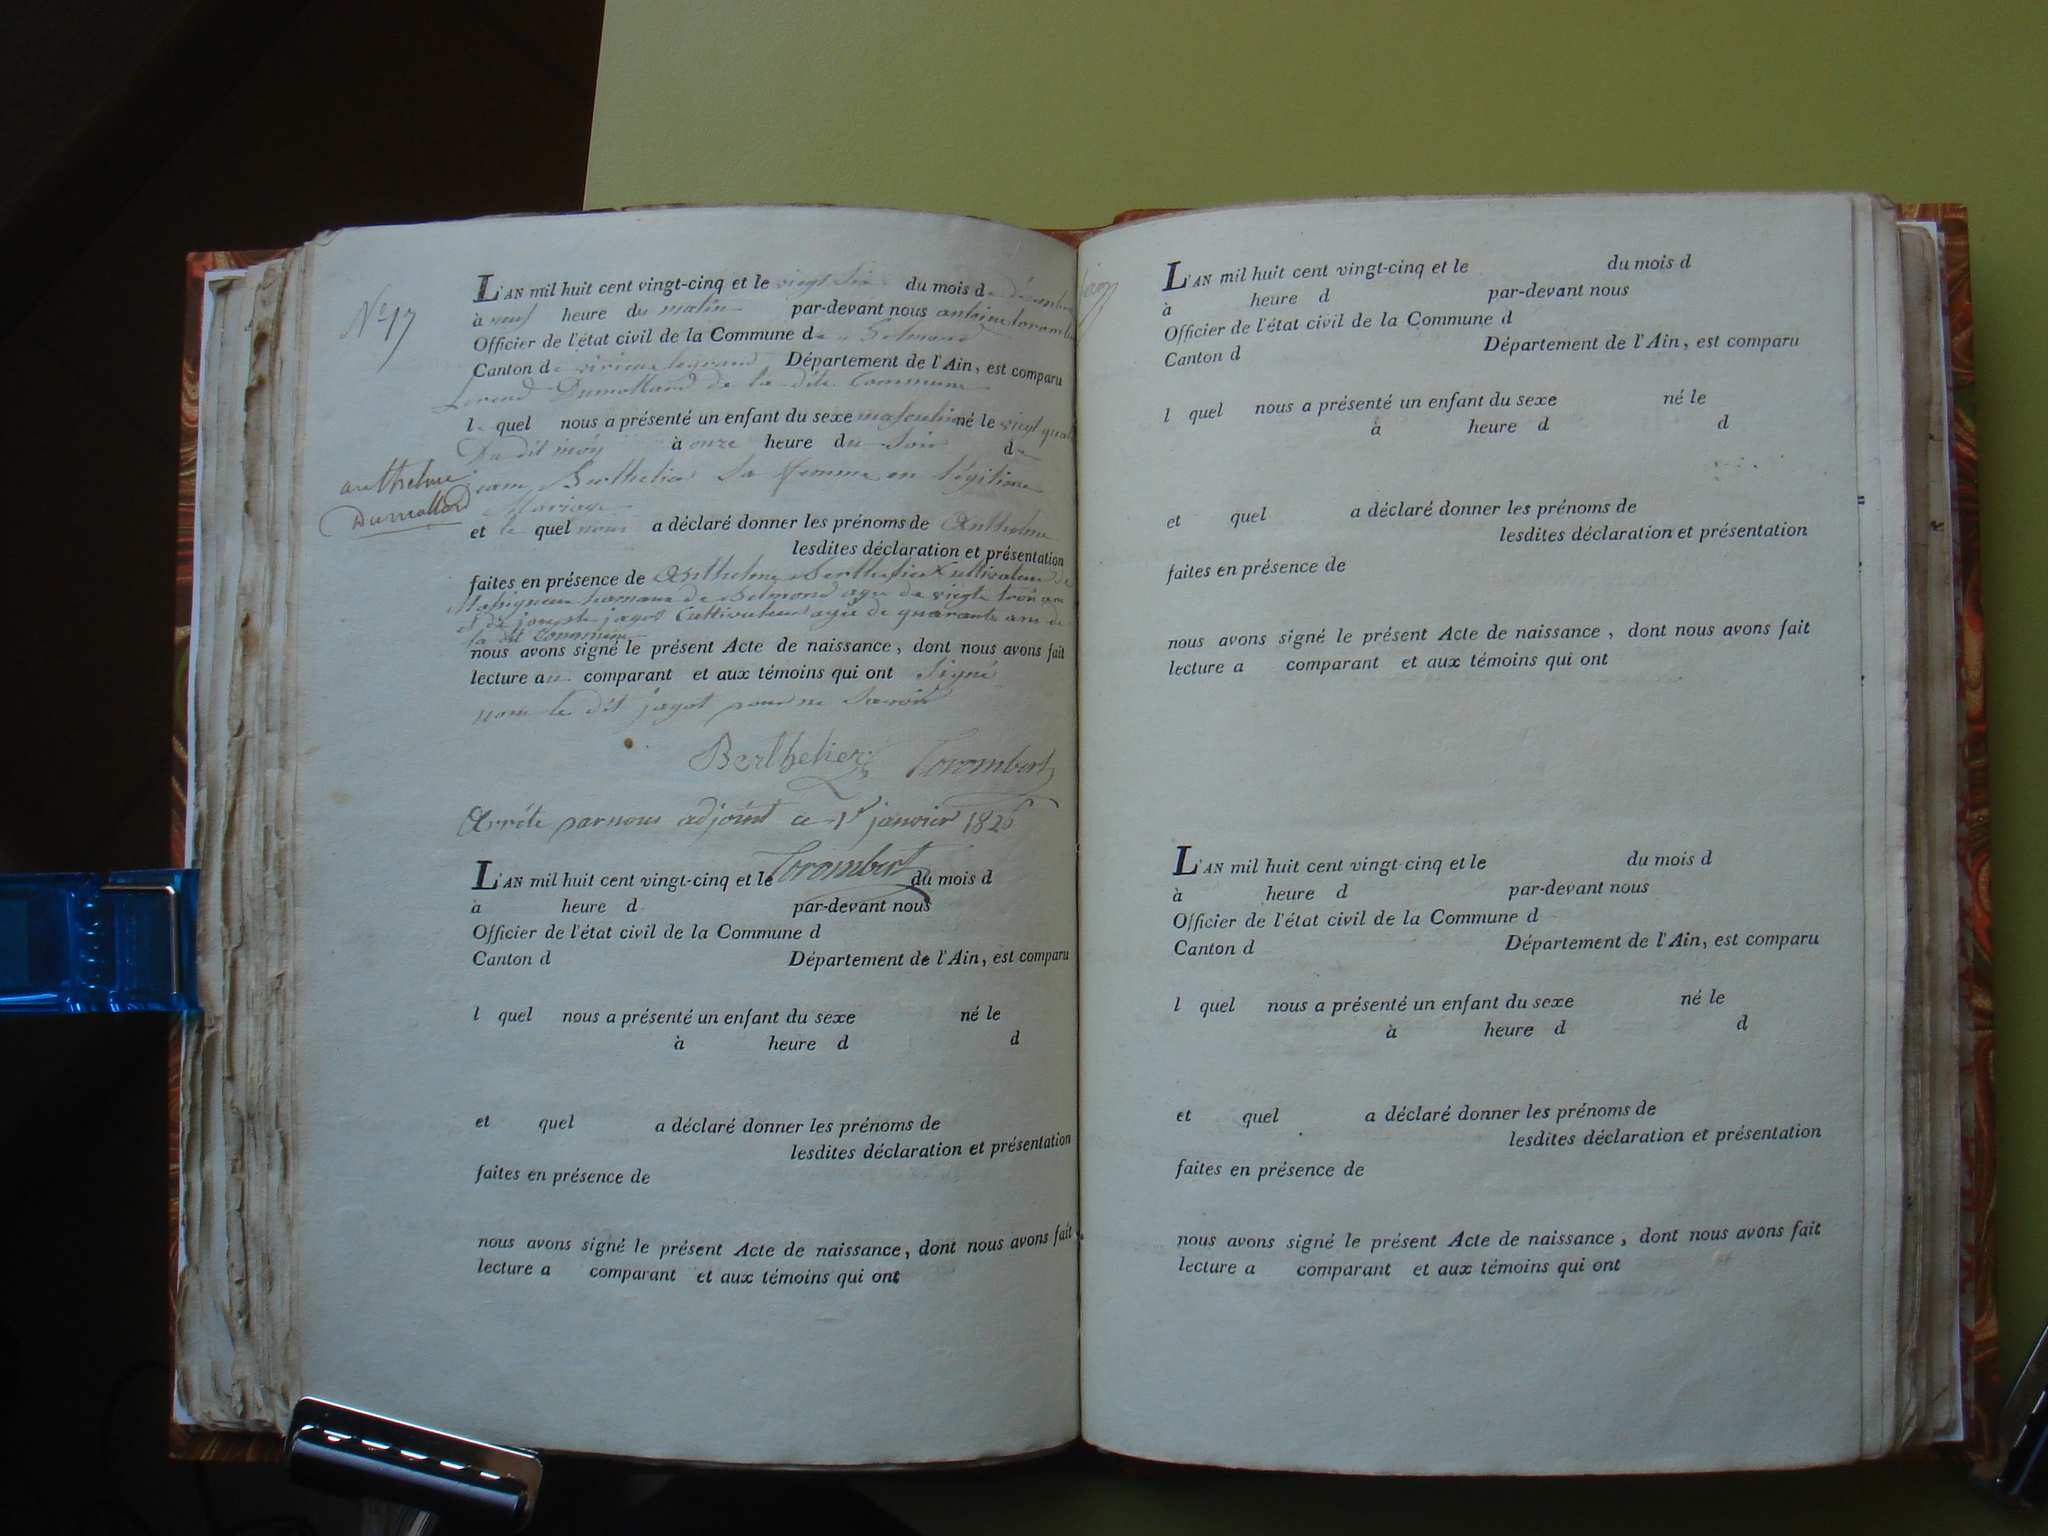 N° 17
L'AN mil huit cent vingt-cinq et le vingt six du mois de décembre
à neuf heure du matin par-devant nous antoine torombert
Officier de l'état civil de la Commune de Belmond
Canton de virieu legrand Département de l'Ain, est comparu
Dumollard de la dite Commune
le quel nous a présenté un enfant du sexe masculin né le vingt quatre
Du dit mois à onze heure du Soir de
anthelme
Dumollard
Berthelier Sa femme en légitime
Mariage
et le quel nous a déclaré donner les prénoms de Anthelme
lesdites déclaration et présentation
faites en présence de Anthelme Berthelier Cultivateur de
hamaux de Belmond agé de vingt trois ans
et de joseph jagot Cultivateur agé de quarante ans de
la dit Commune
nous avons signé le présent Acte de naissance, dont nous avons fait
lecture au comparant et aux témoins qui ont Signé
non le dit jagot pour ne Savoir
Berthelier Torombert
Arrété par nous adjoint ce 1r janvier 1826
Torombert
L'AN mil huit cent vingt-cinq et le du mois d
à heure d par-devant nous
Officier de l'état civil de la Commune d
Canton d Département de l'Ain, est comparu
l quel nous a présenté un enfant du sexe né le
à heure d d
et quel a déclaré donner les prénoms de
lesdites déclaration et présentation
faites en présence de
nous avons signé le présent Acte de naissance, dont nous avons fait
lecture a comparant et aux témoins qui ont
L'AN mil huit cent vingt-cinq et le du mois d
à heure d par-devant nous
Officier de l'état civil de la Commune d
Canton d Département de l'Ain, est comparu
l quel nous a présenté un enfant du sexe né le
à heure d d
et quel a déclaré donner les prénoms de
lesdites déclaration et présentation
faites en présence de
nous avons signé le présent Acte de naissance, dont nous avons fait
lecture a comparant et aux témoins qui ont
L'AN mil huit cent vingt-cinq et le du mois d
à heure d par-devant nous
Officier de l'état civil de la Commune d
Canton d Département de l'Ain, est comparu
l quel nous a présenté un enfant du sexe né le
à heure d d
et quel a déclaré donner les prénoms de
lesdites déclaration et présentation
faites en présence de
nous avons signé le présent Acte de naissance, dont nous avons fait
lecture a comparant et aux témoins qui ont